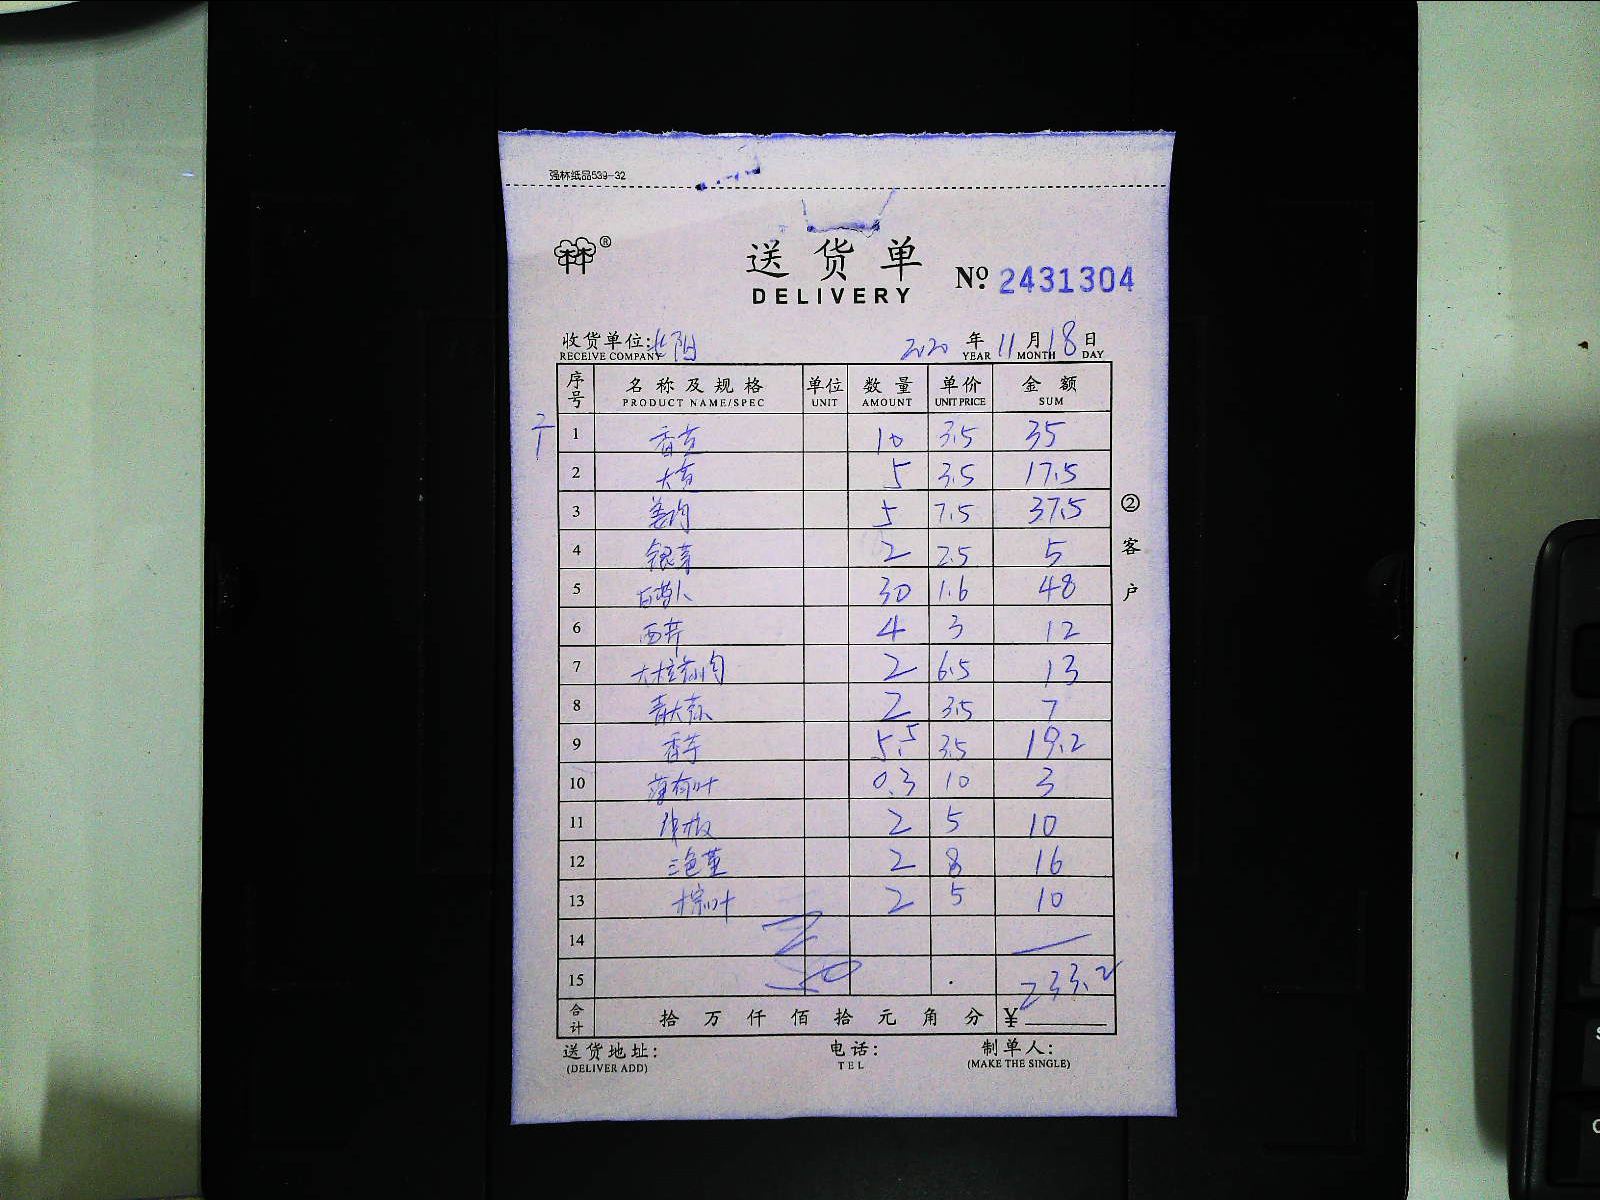 强林纸品539-32
®
送货单
DELIVERY
No. 2431304
收货单位: 北阳 2020 年 11 月 18 日
RECEIVE COMPANY YEAR MONTH DAY
序号 名称及规格 单位 数量 单价 金额
PRODUCT NAME/SPEC UNIT AMOUNT UNIT PRICE SUM
1 10 3.5 35
2 5 3.5 17.5
3 姜肉 5 7.5 37.5
4 银芽 2 2.5 5
5 白萝卜 30 1.6 48
6 西芹 4 3 12
7 2 6.5 13
8 青大 2 3.5 7
9 香芋 5.5 3.5 19.2
10 薄荷叶 0.3 10 3
11 2 5 10
12 三色堇 2 8 16
13 棕叶 2 5 10
14
15 233.2
合计 拾 万 仟 佰 拾 元 角 分 ¥
②客户
送货地址: 电话: 制单人:
(DELIVER ADD) TEL (MAKE THE SINGLE)